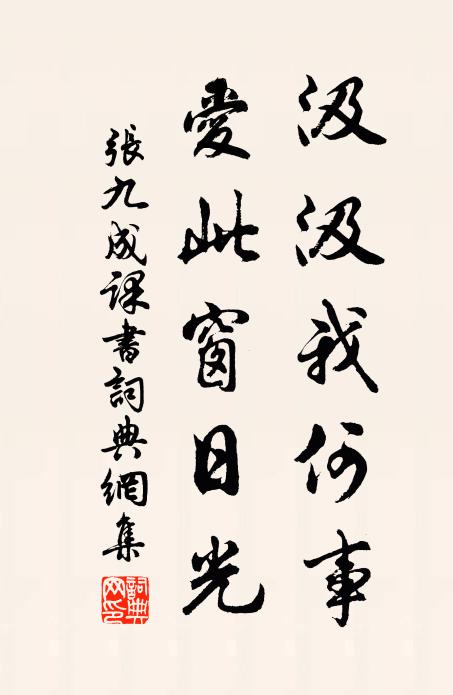 汲汲我何事
愛此窗日光
張九成課書詞典網集
詞典網印